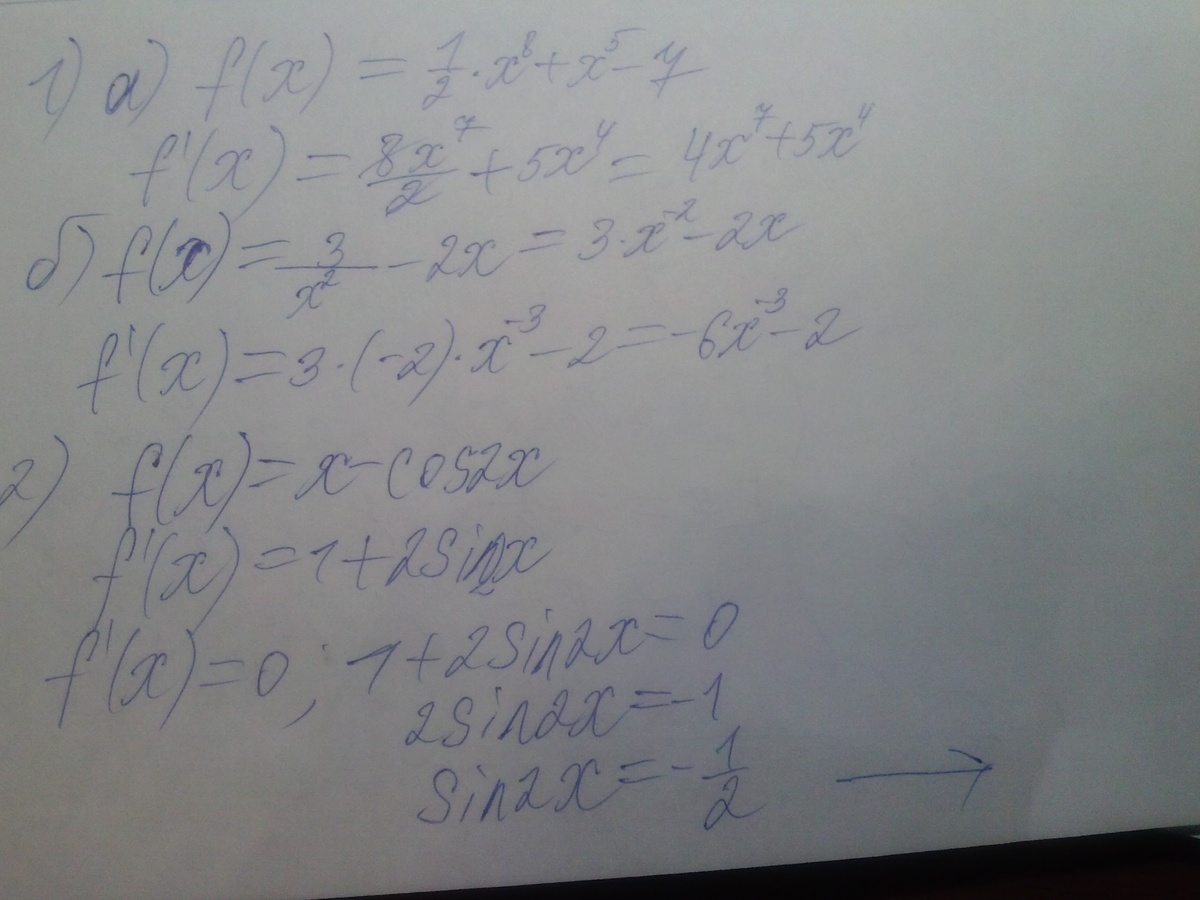 1) а) f(x) = 1/2 · x⁸ + x⁵ - 7
f'(x) = 8x⁷/2 + 5x⁴ = 4x⁷ + 5x⁴
б) f(x) = 3/x² - 2x = 3 · x⁻² - 2x
f'(x) = 3 · (-2) · x⁻³ - 2 = -6x⁻³ - 2
2) f(x) = x - cos2x
f'(x) = 1 + 2sin2x
f'(x) = 0; 1 + 2sin2x = 0
2sin2x = -1
sin2x = -1/2 →